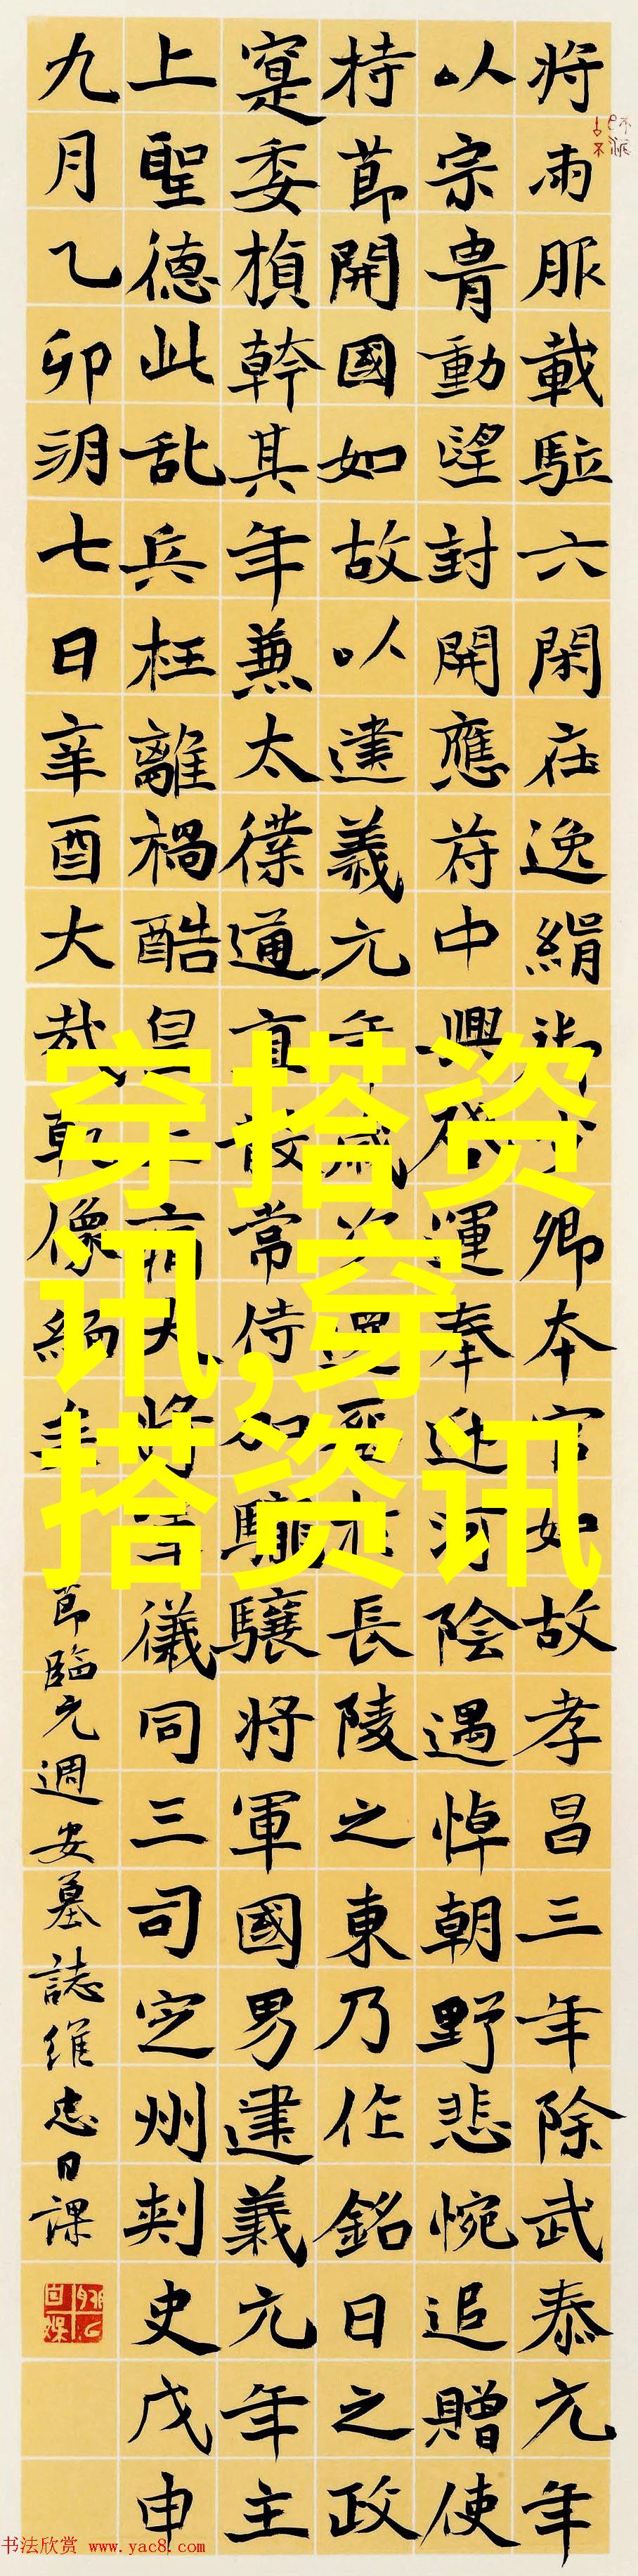 将雨服載駈六閑在逸絹尚少卿本官如故孝昌三年除武泰元年
以宗胄動望封開應苻中興啓運奉迎河陰遇悼朝野悲惋追贈使
持節開國如故以建義元年歲次還於長陵之東乃作銘曰之政
寔委楨幹其年兼太僕通直散常侍加龍驤将軍國男建義元年主
上聖德此乱兵枉離禍酷皇上大将軍儀同三司定州刺史戊申
九月乙卯朔七日辛酉大哉乾像緬
節臨元週安墓誌维忠日課
穿搭资
讯,穿
搭资讯
书法欣赏 www.yac8.com